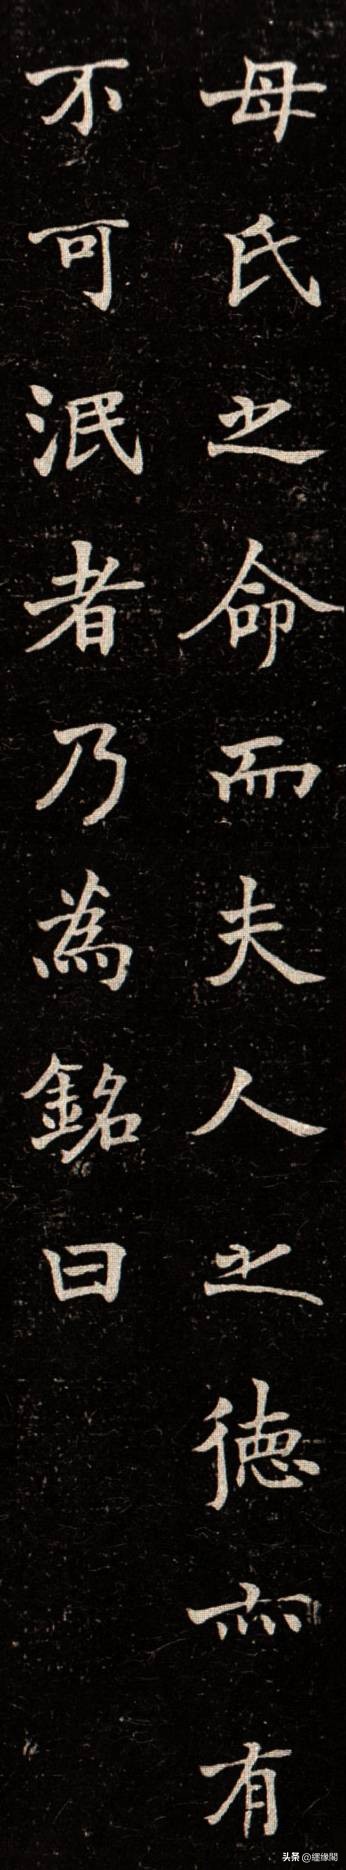 母氏之命而夫人之徳亦有
不可泯者乃為銘曰
头条 @纒缘閣